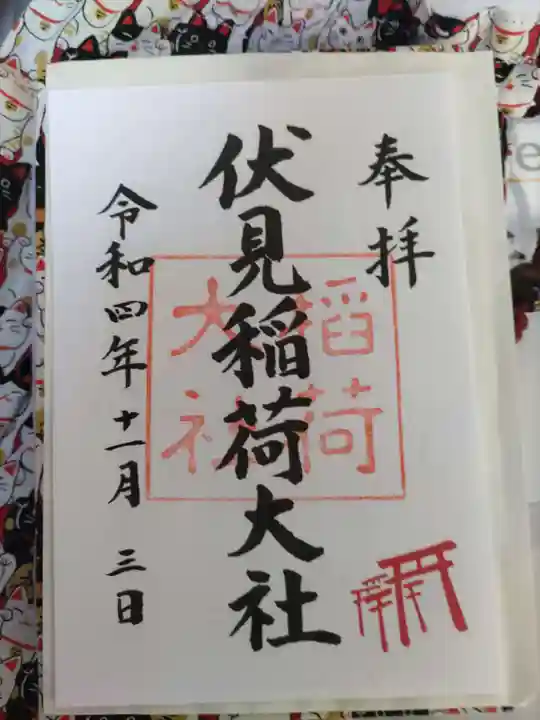 奉拝
伏見稲荷大社
稲荷
大社
令和四年十一月三日